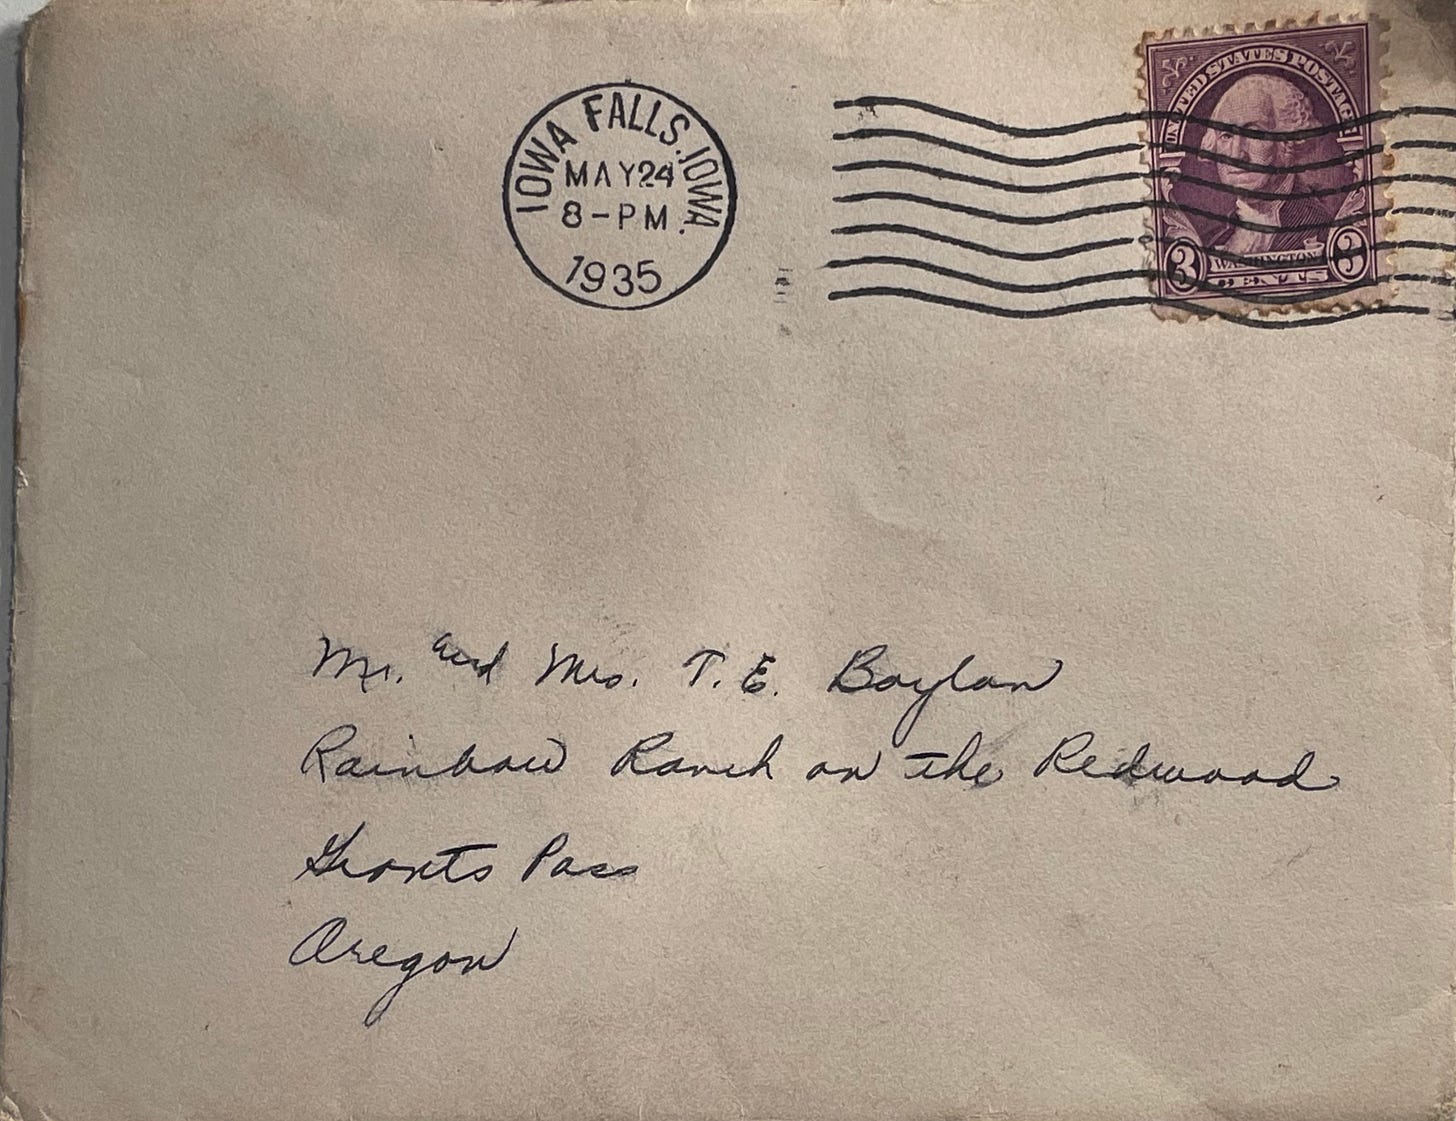 IOWA FALLS. IOWA.
MAY 24
8-PM
1935
UNITED STATES POSTAGE
3 WASHINGTON 3
CENTS
Mr. and Mrs. T. E. Boylan
Rainbow Ranch on the Redwood
Grants Pass
Oregon